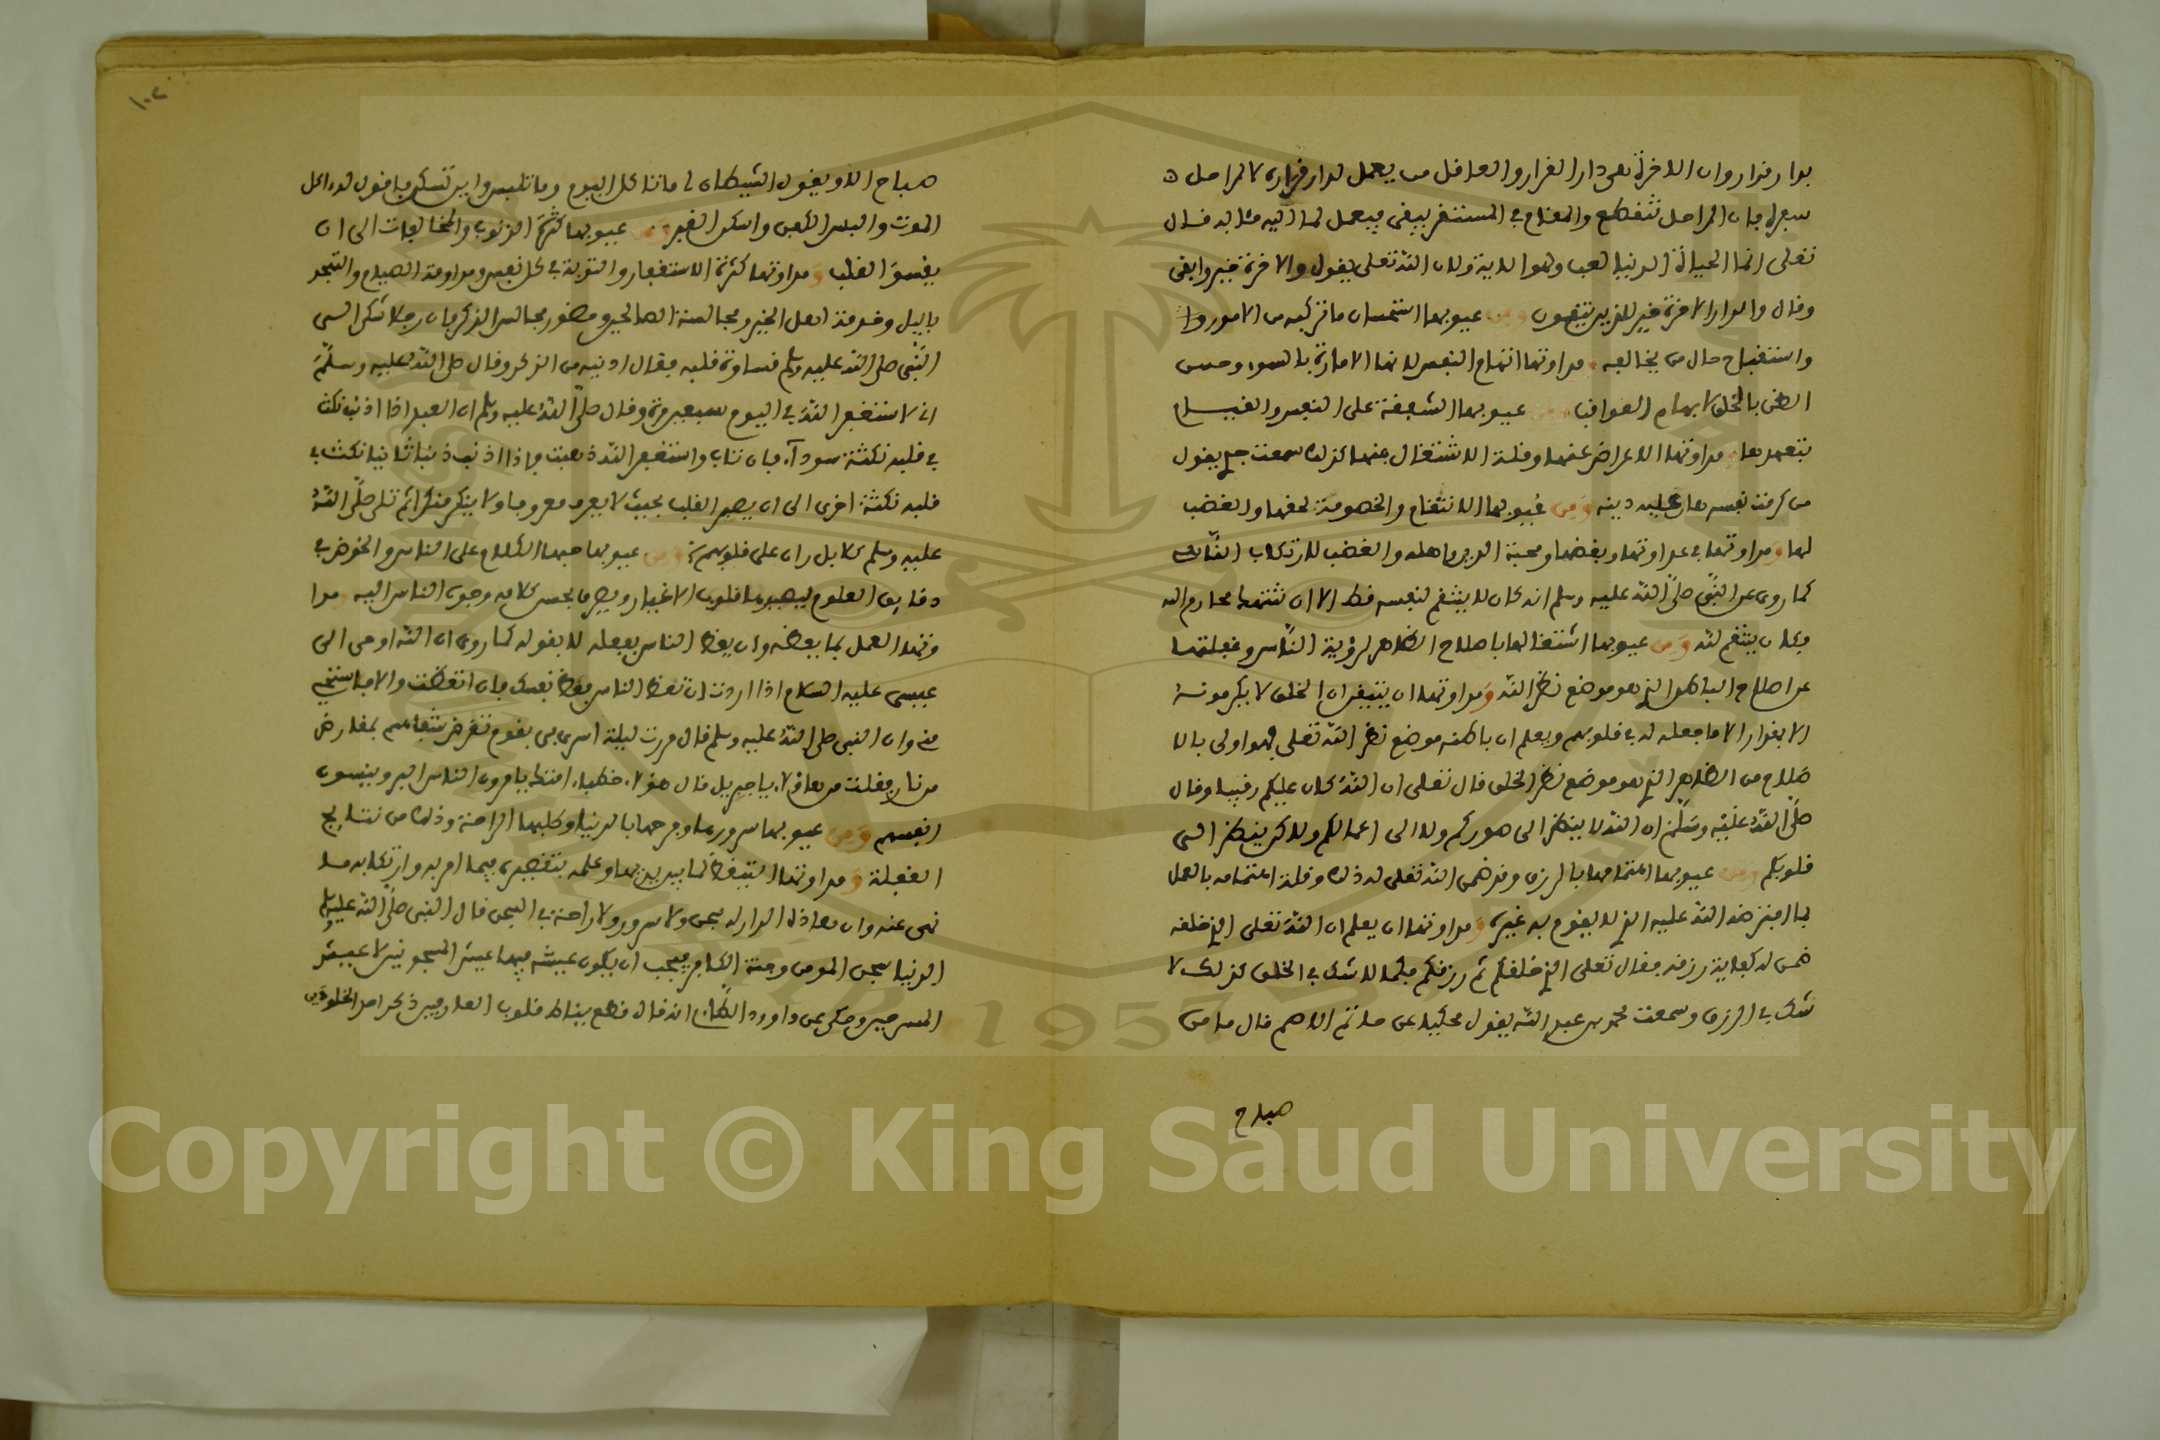 بدار قرار وان الاخرة هي دار القرار والعاقل من يعمل لدار قراره لا لمراحل
سفره فان المراحل تنقطع والمقام في المستقر يبقى فيعمل لما اليه مئابه قال
تعلى انما الحياة الدنيا لعب ولهو الاية ولان الله تعلى يقول والاخرة خير وابقى
وقال والدار الاخرة خير للذين يتقون ومن عيوبها استحسان ما تركبه من الامور
واستقباح حال من يخالفه ومداوتها اتهام النفس لانها الامارة بالسوء وحسن
الظن بالخلق لابهام العواقب ومن عيوبها الشفقة على النفس والقيام
بتعهدها ومداوتها الاعراض عنها وقلة الاشتغال بها كذلك سمعت جدي يقول
من كرمت نفسه هان عليه دينه ومن عيوبها الانتقام والخصومة لحقها والغضب
لها ومداوتها في عداوتها وبغضها ومحبة الدين واهله والغضب لارتكاب
كما روي عن النبي صلى الله عليه وسلم انه كان لا ينتقم لنفسه قط الا ان تنتهك محارم الله
فكان ينتقم لله ومن عيوبها اشتغالها باصلاح الظاهر لرؤية الناس وغفلتها
عن اصلاح الباطن الذي هو موضع نظر الله ومداوتها ان يتيقن ان الخلق لا يكرمونه
الا بمقدار الا ما جعله له في قلوبهم ويعلم ان باطنه موضع نظر الله تعلى فهو اولى بالا
صلاح من الظاهر الذي هو موضع نظر الخلق قال تعلى ان الله كان عليكم رقيبا وقال
صلى الله عليه وسلم ان الله لا ينظر الى صوركم ولا الى اعمالكم ولاكن ينظر الى
قلوبكم ومن عيوبها اهتمامها بالرزق وقد ضمن الله تعلى له ذلك وقلة اهتمامه بالعمل
بما افترضه الله عليه الذي لا يقوم به غيره ومداوتها ان يعلم ان الله تعلى الذي خلقه
ضمن له كفاية رزقه فقال تعلى الذي خلقكم ثم رزقكم فكما لا شك في الخلق كذلك لا
شك في الرزق وسمعت محمد بن عبد الله يقول محكيا عن حاتم الاصم قال ما من
صباح
١٠٢
صباح الا ويقول الشيطان لي ما تاكل اليوم وما تلبس واين تسكن فاقول له ءاكل
الموت والبس الكفن واسكن القبر ومن عيوبها كثرة الذنوب والمخالفات الى ان
يقسو القلب ومداوتها كثرة الاستغفار والتوبة في كل نفس ومداومة الصيام والتهجد
باليل وخدمة اهل الخير ومجالسة الصالحين وحضور مجالس الذكر فان رجلا شكى الى
النبي صلى الله عليه وسلم قساوة قلبه فقال ادنيه من الذكر وقال صلى الله عليه وسلم
اني لاستغفر الله في اليوم سبعين مرة وقال صلى الله عليه وسلم ان العبد اذا اذنب نكث
في قلبه نكتة سوداء فان تاب واستغفر الله ذهبت فاذا اذنب ذنبا ثانيا نكث في
قلبه نكتة اخرى الى ان يصير القلب بحيث لا يعرف معروفا ولا ينكر منكرا ثم تلى صلى الله
عليه وسلم كلا بل ران على قلوبهم ومن عيوبها حبها الكلام على الناس والخوض في
دقايق العلوم ليصيد بها قلوب الاغيار ويصرف بحسن كلامه وجوه الناس اليه مدا
وتها العمل بما يعظه وان يعظ الناس بفعله لا بقوله كما روي ان الله اوحى الى
عيسى عليه السلام اذا اردت ان تعظ الناس فعظ نفسك فان اتعظت والا فاستحي
مني وان النبي صلى الله عليه وسلم قال مررت ليلة اسري بي بقوم تقرض شفاههم بمقارض
من نار فقلت من هاؤلاء يا جبريل قال هؤلاء خطباء امتك يامرون الناس بالبر وينسون
انفسهم ومن عيوبها سرورها وفرحها بالدنيا وطلبها الراحة وذلك من نتايج
الغفلة ومداوتها التيقظ لما بين يديها وعلمه بتقصيره فيما امر به وارتكابه ما
نهي عنه وان هاذه الدار له سجن ولا سرور ولا راحة في السجن قال النبي صلى الله عليه وسلم
الدنيا سجن المومن وجنة الكافر فيجب ان يكون عيشه فيها عيش المسجونين لا عيش
المسرحين وحكي عن داوود الطائي انه قال قطع نياط قلوب العارفين ذكر احد الخلودين